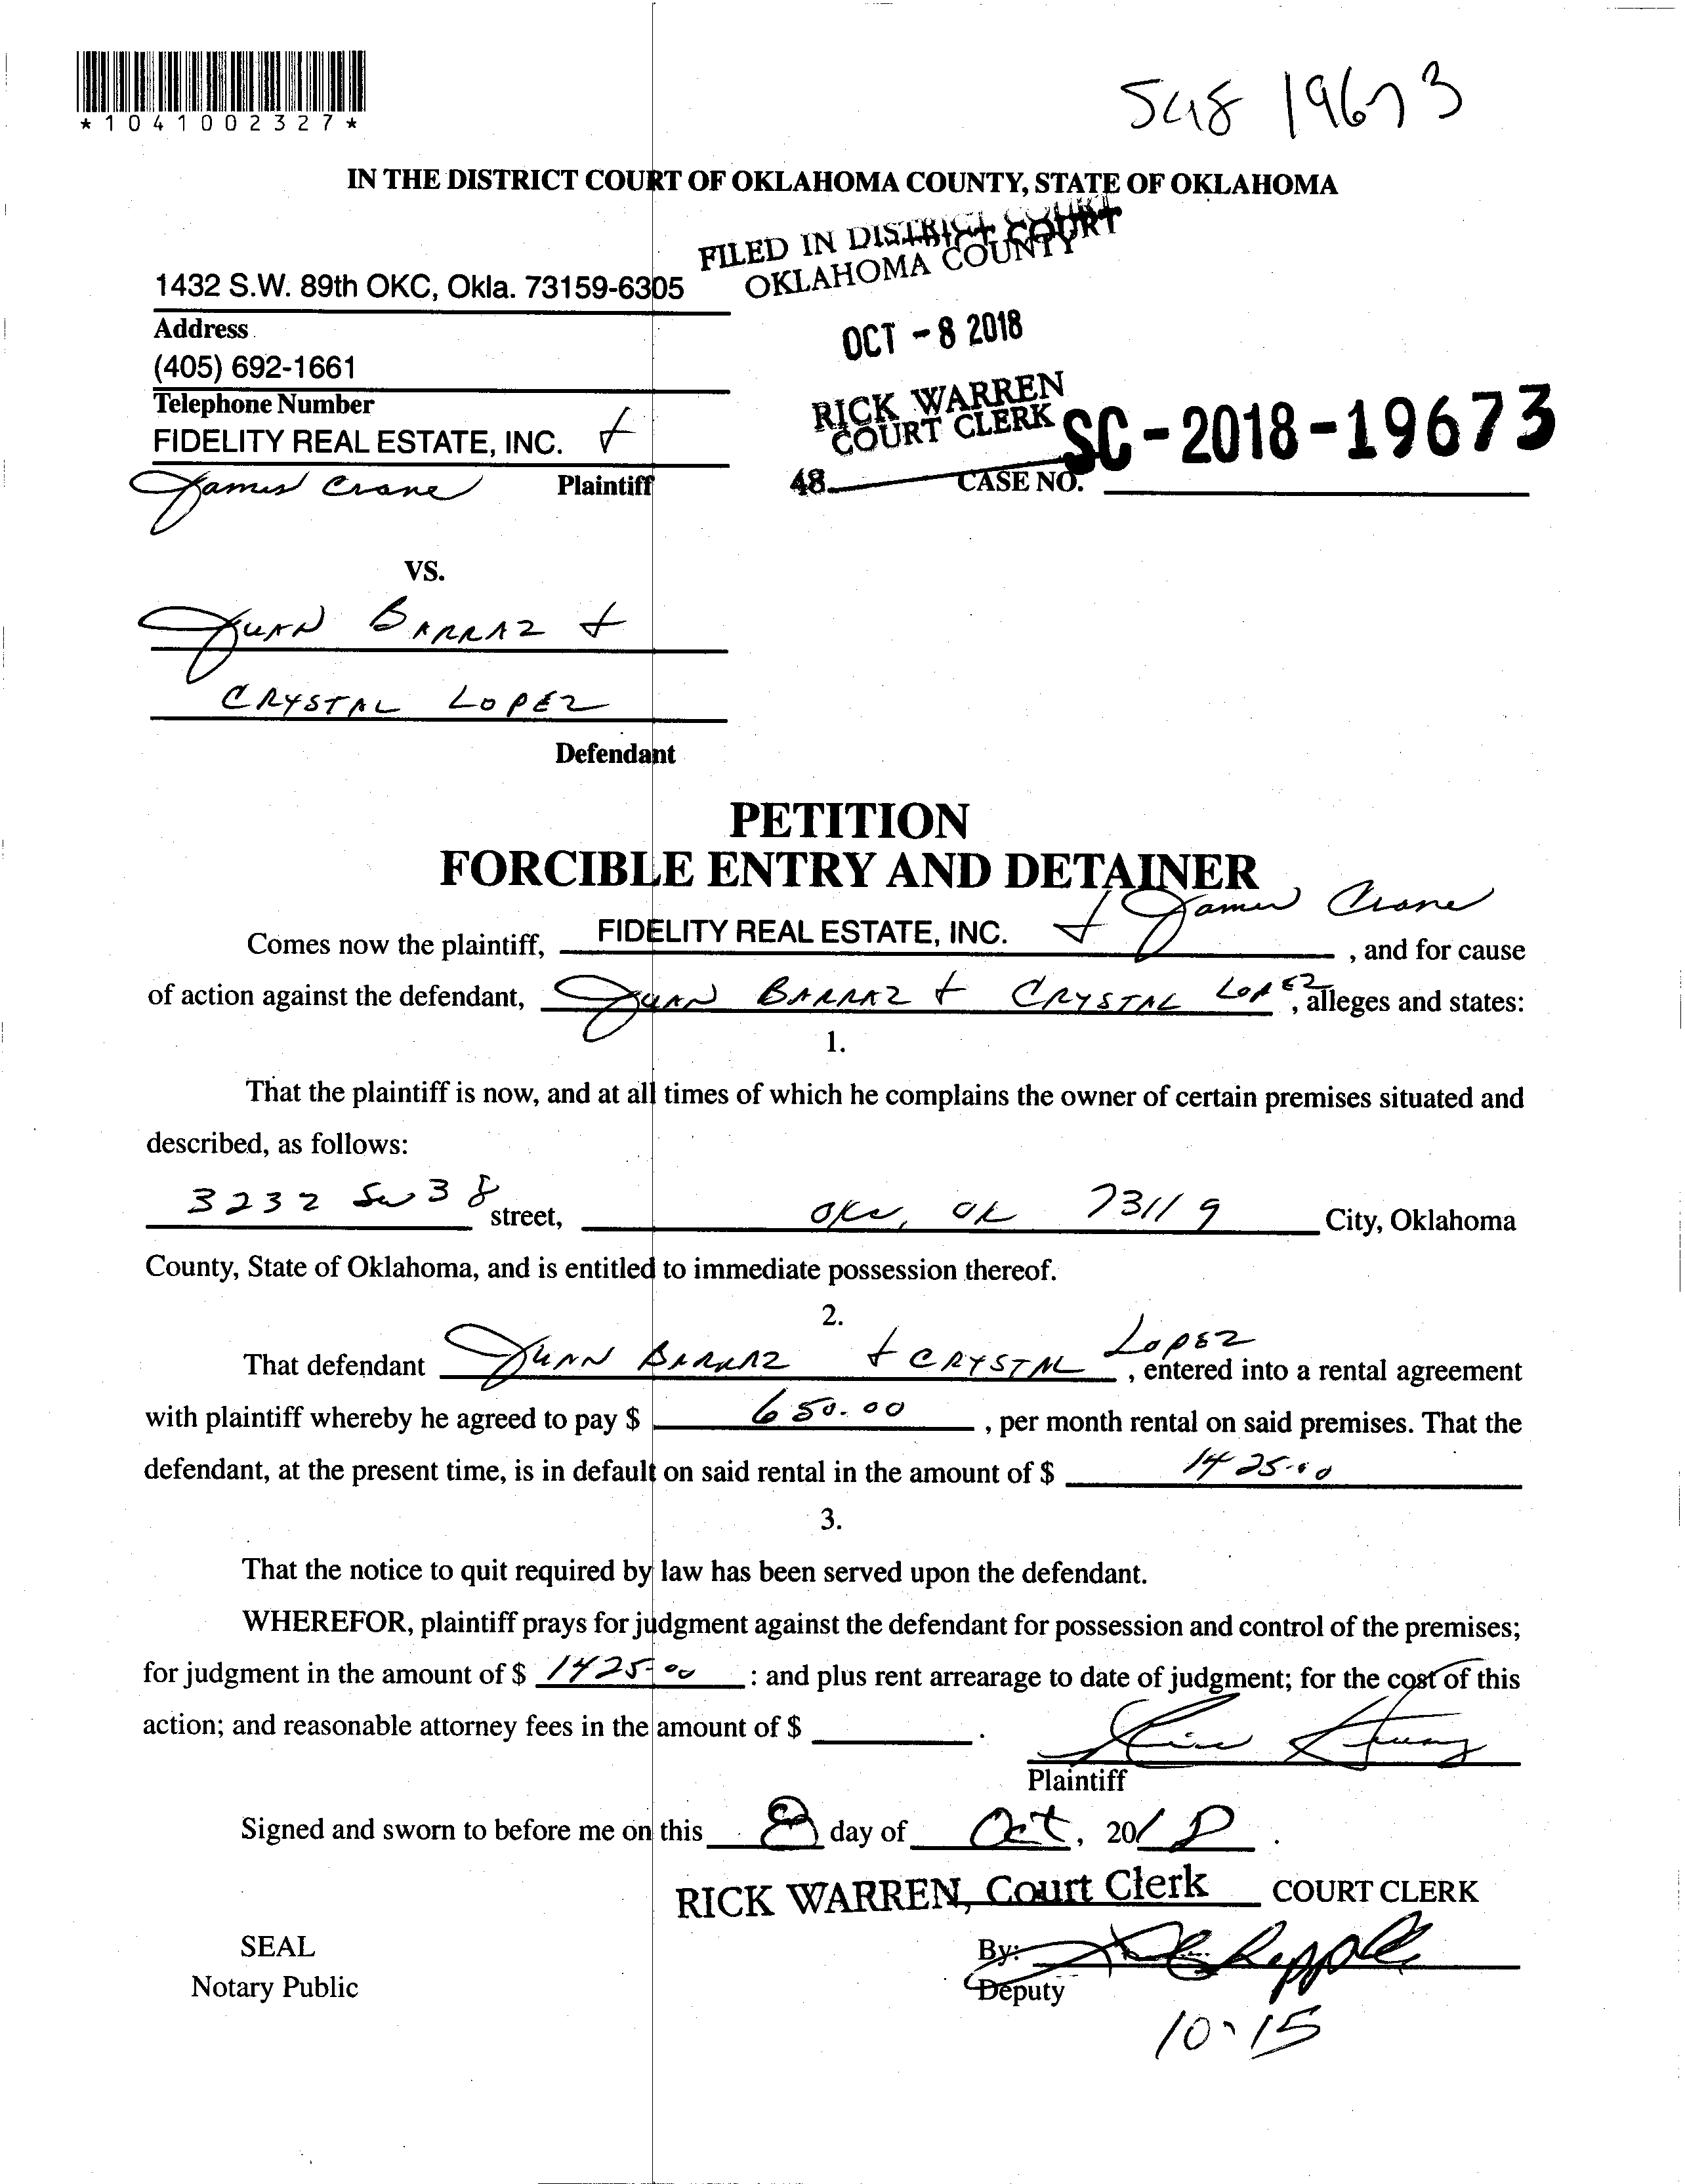 *1041002327*
SC18 19673
IN THE DISTRICT COURT OF OKLAHOMA COUNTY, STATE OF OKLAHOMA
FILED IN DISTRICT COURT
OKLAHOMA COUNTY
1432 S.W. 89th OKC, Okla. 73159-6305
Address
OCT - 8 2018
(405) 692-1661
Telephone Number
RICK WARREN
COURT CLERK
SC-2018-19673
FIDELITY REAL ESTATE, INC. +
James Crane Plaintiff
48 CASE NO.
VS.
JUAN BARRAZ +
CRYSTAL LOPEZ
Defendant
PETITION
FORCIBLE ENTRY AND DETAINER
Comes now the plaintiff, FIDELITY REAL ESTATE, INC. + James Crane, and for cause
of action against the defendant, JUAN BARRAZ + CRYSTAL LOPEZ, alleges and states:
1.
That the plaintiff is now, and at all times of which he complains the owner of certain premises situated and
described, as follows:
3232 SW 38 street, OKC, OK 73119 City, Oklahoma
County, State of Oklahoma, and is entitled to immediate possession thereof.
2.
That defendant JUAN BARRAZ + CRYSTAL LOPEZ, entered into a rental agreement
with plaintiff whereby he agreed to pay $ 650.00, per month rental on said premises. That the
defendant, at the present time, is in default on said rental in the amount of $ 1425.00
3.
That the notice to quit required by law has been served upon the defendant.
WHEREFOR, plaintiff prays for judgment against the defendant for possession and control of the premises;
for judgment in the amount of $ 1425.00 : and plus rent arrearage to date of judgment; for the cost of this
action; and reasonable attorney fees in the amount of $ .
Plaintiff
Signed and sworn to before me on this 8 day of Oct, 2018.
RICK WARREN, Court Clerk COURT CLERK
SEAL
By:
Notary Public
Deputy
10-15